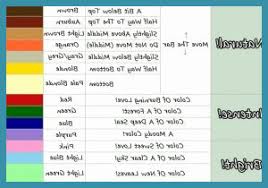 A Bit Below The Top Brown
Half Way To The Top Auburn
Slightly Above Middle
Natural! Move The Bar Do Not Move Middle Orange
Slightly Below Middle Gray/Grey
Half Way To Bottom Blonde
Bottom Pale Blonde
Color Of Burning Love! Red
Color Of A Forest! Green
Intense! Color Of Blue
A Moody Color! Purple
Color Of Sweet Love! Pink
Bright! Color Of Clear Sky! Light Blue
Color Of A New Leaf! Light Green